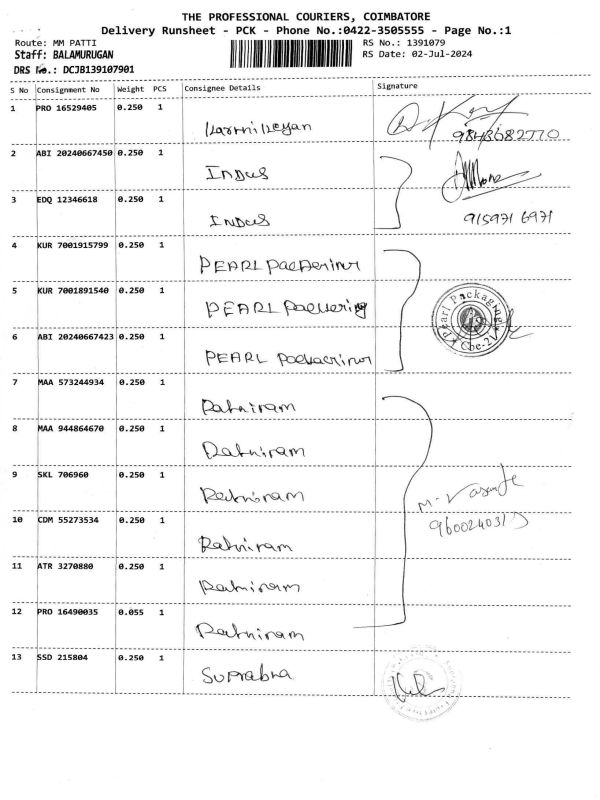 THE PROFESSIONAL COURIERS, COIMBATORE
Delivery Runsheet - PCK - Phone No.:0422-3505555 - Page No.:1
Route: MM PATTI RS No.: 1391079
Staff: BALAMURUGAN RS Date: 02-Jul-2024
DRS No.: DCJB139107901
S No Consignment No Weight PCS Consignee Details Signature
1 PRO 16529405 0.250 1
9843682770
2 ABI 20240667450 0.250 1 INDUS
3 EDQ 12346618 0.250 1 INDUS 915971 6971
4 KUR 7001915799 0.250 1 PEARL
5 KUR 7001891540 0.250 1 PEARL
Pearl Packaging
Cbe-2
6 ABI 20240667423 0.250 1 PEARL
7 MAA 573244934 0.250 1 Ratniram
8 MAA 944864670 0.250 1 Ratniram
9 SKL 706960 0.250 1 Ratniram
M. 
10 CDM 55273534 0.250 1 Ratniram
11 ATR 3270880 0.250 1 Ratniram
12 PRO 16490035 0.055 1 Ratniram
13 SSD 215804 0.250 1 Suprabha